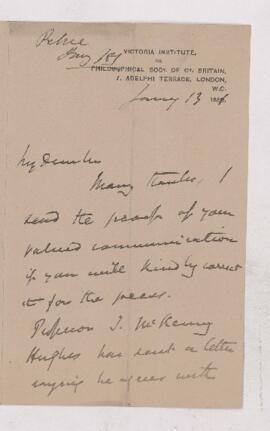 Petrie
VICTORIA INSTITUTE,
OR
PHILOSOPHICAL SOCY. OF GT. BRITAIN,
7, ADELPHI TERRACE, LONDON,
W.C.
13 188
My Dear Sir
Many thanks, I
send the proof of your
valued communication
if you will kindly correct
it for the press.
Professor T. McKenny
Hughes has sent a letter
saying he agrees with